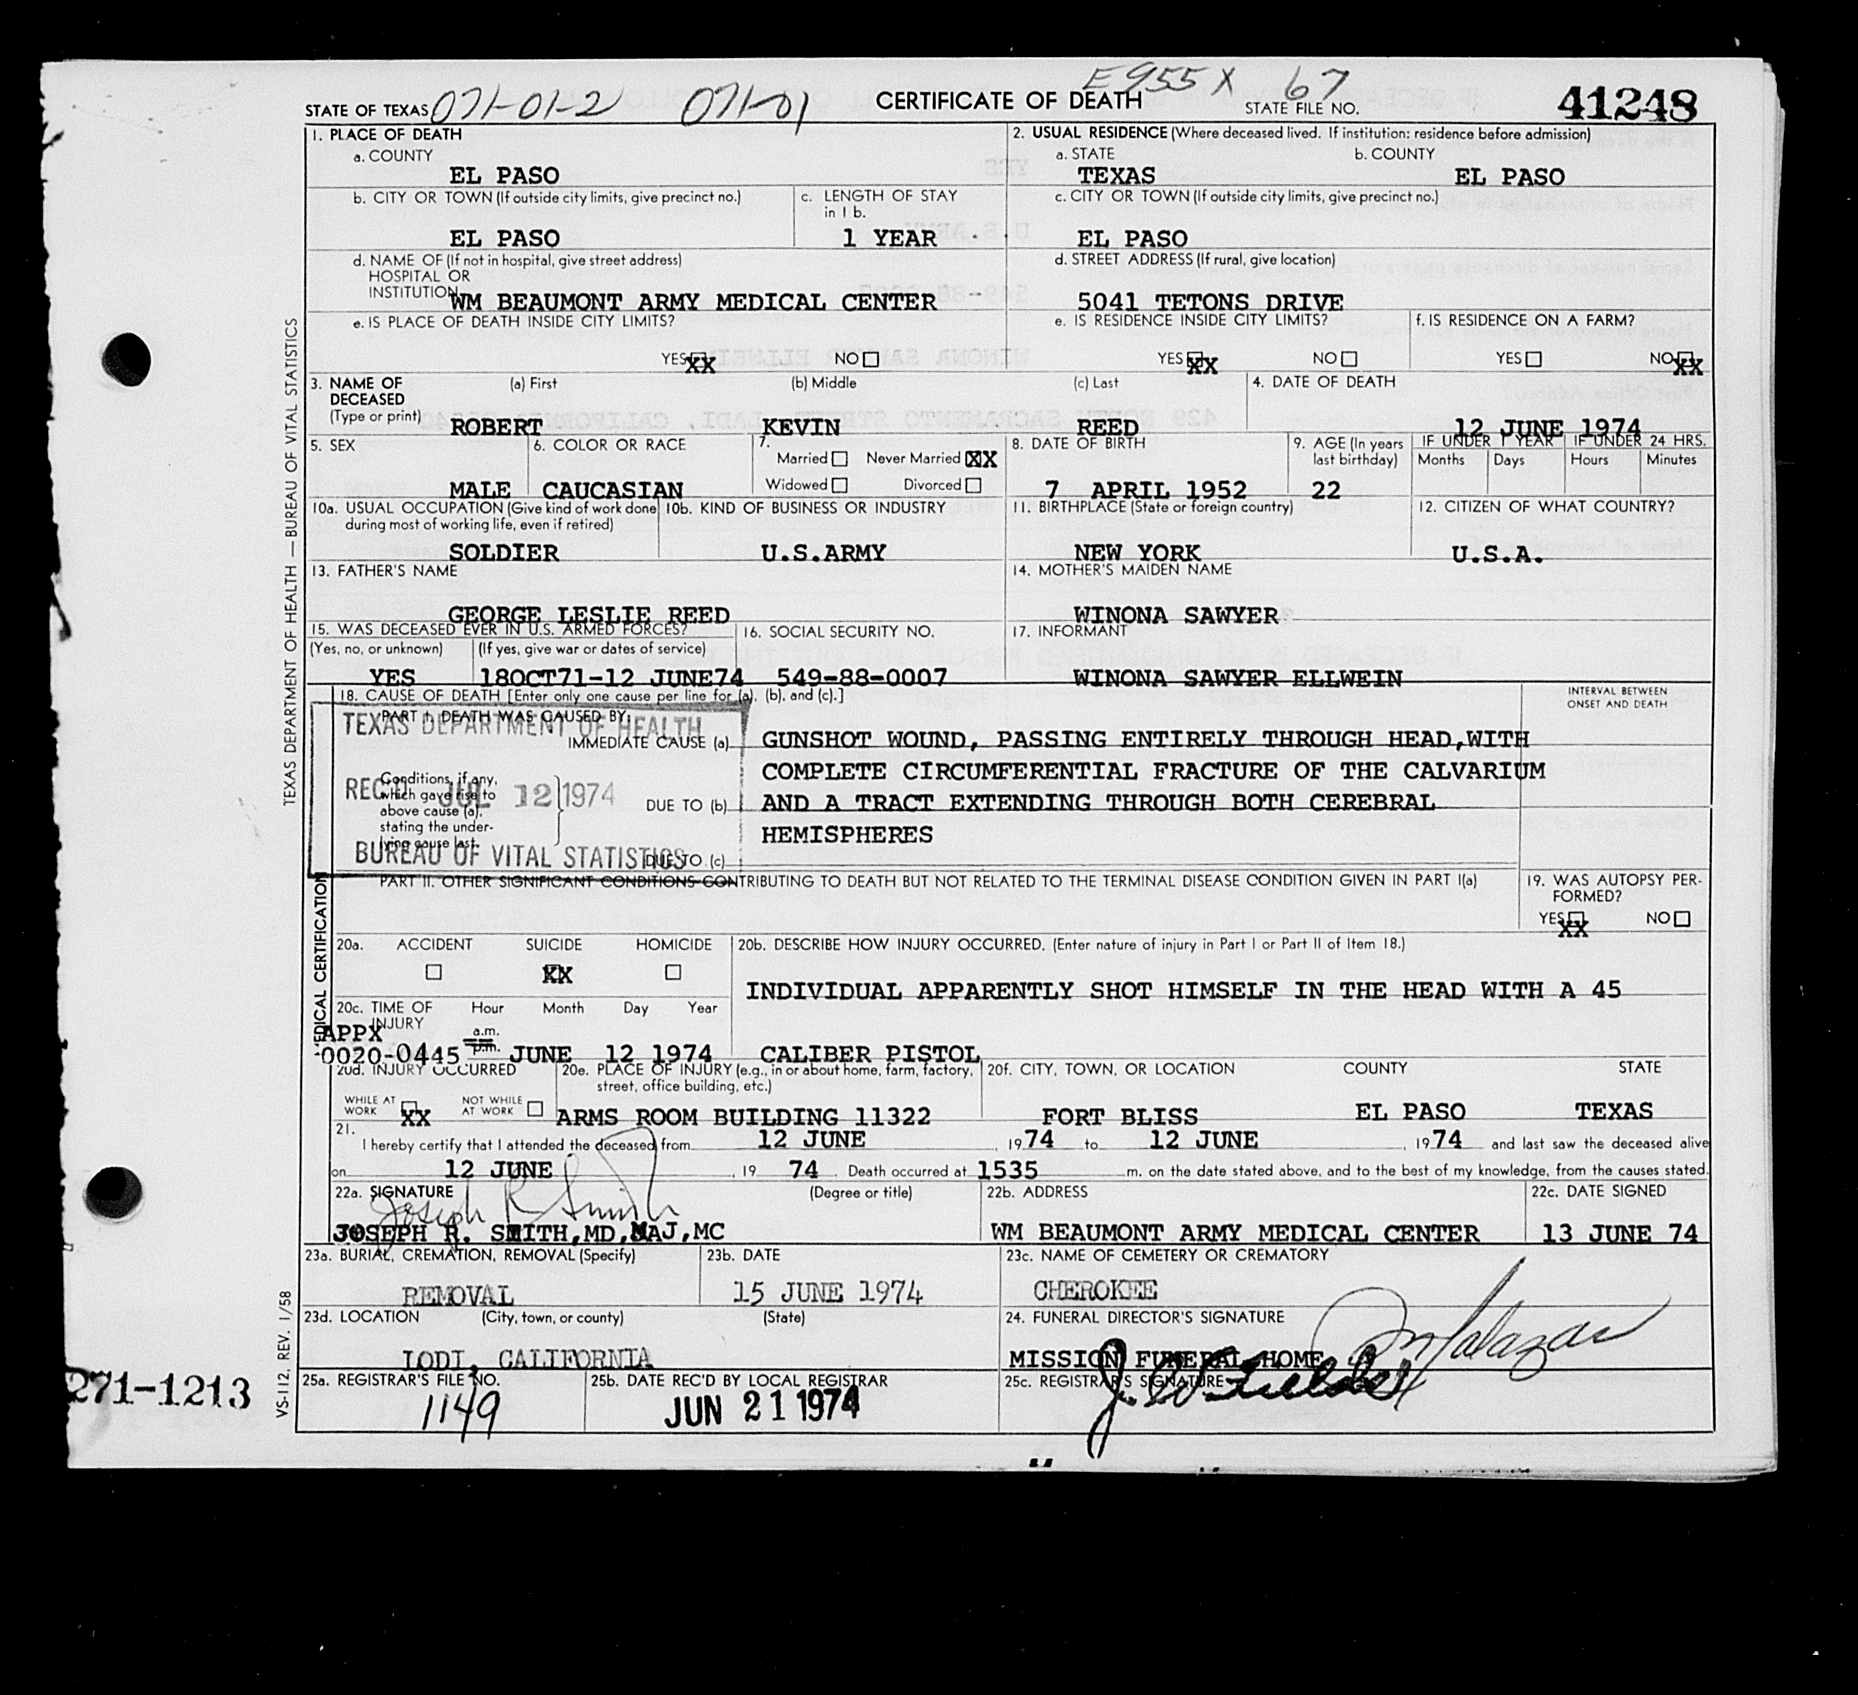 E955X 67
STATE OF TEXAS 071-01-2 071-01 CERTIFICATE OF DEATH STATE FILE NO. 41248
1. PLACE OF DEATH
a. COUNTY
EL PASO
2. USUAL RESIDENCE (Where deceased lived. If institution: residence before admission)
a. STATE b. COUNTY
TEXAS EL PASO
b. CITY OR TOWN (If outside city limits, give precinct no.) c. LENGTH OF STAY
in 1 b.
EL PASO 1 YEAR
c. CITY OR TOWN (If outside city limits, give precinct no.)
EL PASO
d. NAME OF (If not in hospital, give street address)
HOSPITAL OR
INSTITUTION WM BEAUMONT ARMY MEDICAL CENTER
d. STREET ADDRESS (If rural, give location)
5041 TETONS DRIVE
e. IS PLACE OF DEATH INSIDE CITY LIMITS?
YES XX NO
e. IS RESIDENCE INSIDE CITY LIMITS? f. IS RESIDENCE ON A FARM?
YES XX NO YES NO XX
3. NAME OF (a) First (b) Middle (c) Last 4. DATE OF DEATH
DECEASED
(Type or print) ROBERT KEVIN REED 12 JUNE 1974
5. SEX 6. COLOR OR RACE 7. 8. DATE OF BIRTH 9. AGE (In years IF UNDER 1 YEAR IF UNDER 24 HRS.
Married Never Married XX last birthday) Months Days Hours Minutes
Widowed Divorced
MALE CAUCASIAN 7 APRIL 1952 22
10a. USUAL OCCUPATION (Give kind of work done 10b. KIND OF BUSINESS OR INDUSTRY 11. BIRTHPLACE (State or foreign country) 12. CITIZEN OF WHAT COUNTRY?
during most of working life, even if retired)
SOLDIER U.S.ARMY NEW YORK U.S.A.
13. FATHER'S NAME 14. MOTHER'S MAIDEN NAME
GEORGE LESLIE REED WINONA SAWYER
15. WAS DECEASED EVER IN U.S. ARMED FORCES? 16. SOCIAL SECURITY NO. 17. INFORMANT
(Yes, no, or unknown) (If yes, give war or dates of service)
YES 18OCT71-12 JUNE74 549-88-0007 WINONA SAWYER ELLWEIN
18. CAUSE OF DEATH [Enter only one cause per line for (a), (b), and (c).] INTERVAL BETWEEN
ONSET AND DEATH
PART I. DEATH WAS CAUSED BY:
TEXAS DEPARTMENT OF HEALTH
IMMEDIATE CAUSE (a) GUNSHOT WOUND, PASSING ENTIRELY THROUGH HEAD,WITH
COMPLETE CIRCUMFERENTIAL FRACTURE OF THE CALVARIUM
Conditions, if any,
which gave rise to
above cause (a),
stating the under-
lying cause last.
REC'D JUL 12 1974
DUE TO (b) AND A TRACT EXTENDING THROUGH BOTH CEREBRAL
HEMISPHERES
BUREAU OF VITAL STATISTICS
DUE TO (c)
PART II. OTHER SIGNIFICANT CONDITIONS CONTRIBUTING TO DEATH BUT NOT RELATED TO THE TERMINAL DISEASE CONDITION GIVEN IN PART I(a) 19. WAS AUTOPSY PER-
FORMED?
YES XX NO
20a. ACCIDENT SUICIDE HOMICIDE 20b. DESCRIBE HOW INJURY OCCURRED. (Enter nature of injury in Part I or Part II of Item 18.)
XX
INDIVIDUAL APPARENTLY SHOT HIMSELF IN THE HEAD WITH A 45
20c. TIME OF Hour Month Day Year
INJURY a.m.
APPX p.m.
0020-0445 JUNE 12 1974 CALIBER PISTOL
20d. INJURY OCCURRED 20e. PLACE OF INJURY (e.g., in or about home, farm, factory, 20f. CITY, TOWN, OR LOCATION COUNTY STATE
street, office building, etc.)
WHILE AT NOT WHILE
WORK XX AT WORK ARMS ROOM BUILDING 11322 FORT BLISS EL PASO TEXAS
21.
I hereby certify that I attended the deceased from 12 JUNE , 1974 to 12 JUNE , 1974 and last saw the deceased alive
on 12 JUNE , 19 74 . Death occurred at 1535 m. on the date stated above, and to the best of my knowledge, from the causes stated.
22a. SIGNATURE (Degree or title) 22b. ADDRESS 22c. DATE SIGNED
Joseph R Smith
JOSEPH R. SMITH,MD,MAJ,MC WM BEAUMONT ARMY MEDICAL CENTER 13 JUNE 74
23a. BURIAL, CREMATION, REMOVAL (Specify) 23b. DATE 23c. NAME OF CEMETERY OR CREMATORY
REMOVAL 15 JUNE 1974 CHEROKEE
23d. LOCATION (City, town, or county) (State) 24. FUNERAL DIRECTOR'S SIGNATURE
LODI, CALIFORNIA MISSION FUNERAL HOME
25a. REGISTRAR'S FILE NO. 25b. DATE REC'D BY LOCAL REGISTRAR 25c. REGISTRAR'S SIGNATURE
1149 JUN 21 1974
TEXAS DEPARTMENT OF HEALTH — BUREAU OF VITAL STATISTICS
MEDICAL CERTIFICATION
VS-112, REV. 1/58
271-1213